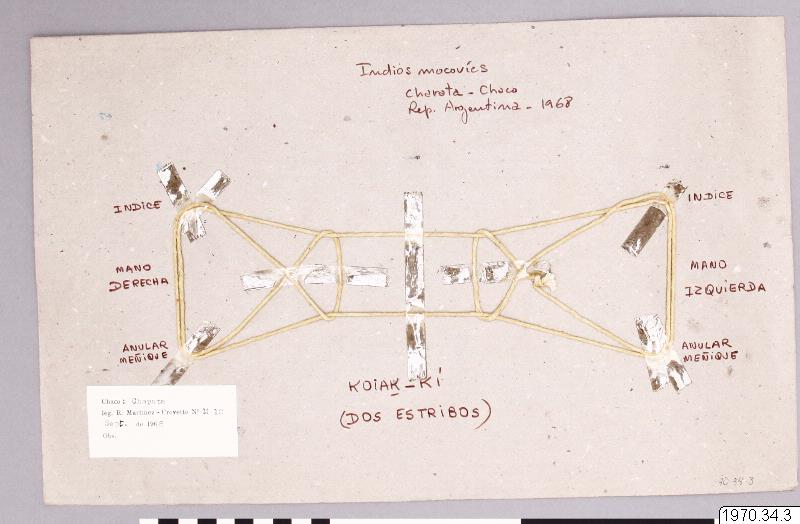 Indios mocovíes
Charata - Chaco
Rep. Argentina - 1968
INDICE
INDICE
MANO
DERECHA
MANO
IZQUIERDA
ANULAR
MEÑIQUE
ANULAR
MEÑIQUE
KOIAK-KÍ
(DOS ESTRIBOS)
Chaco: Charata
leg. R. Martínez-Crovetto Nº
Sept. de 1968
Obs.
70 34 3
1970.34.3